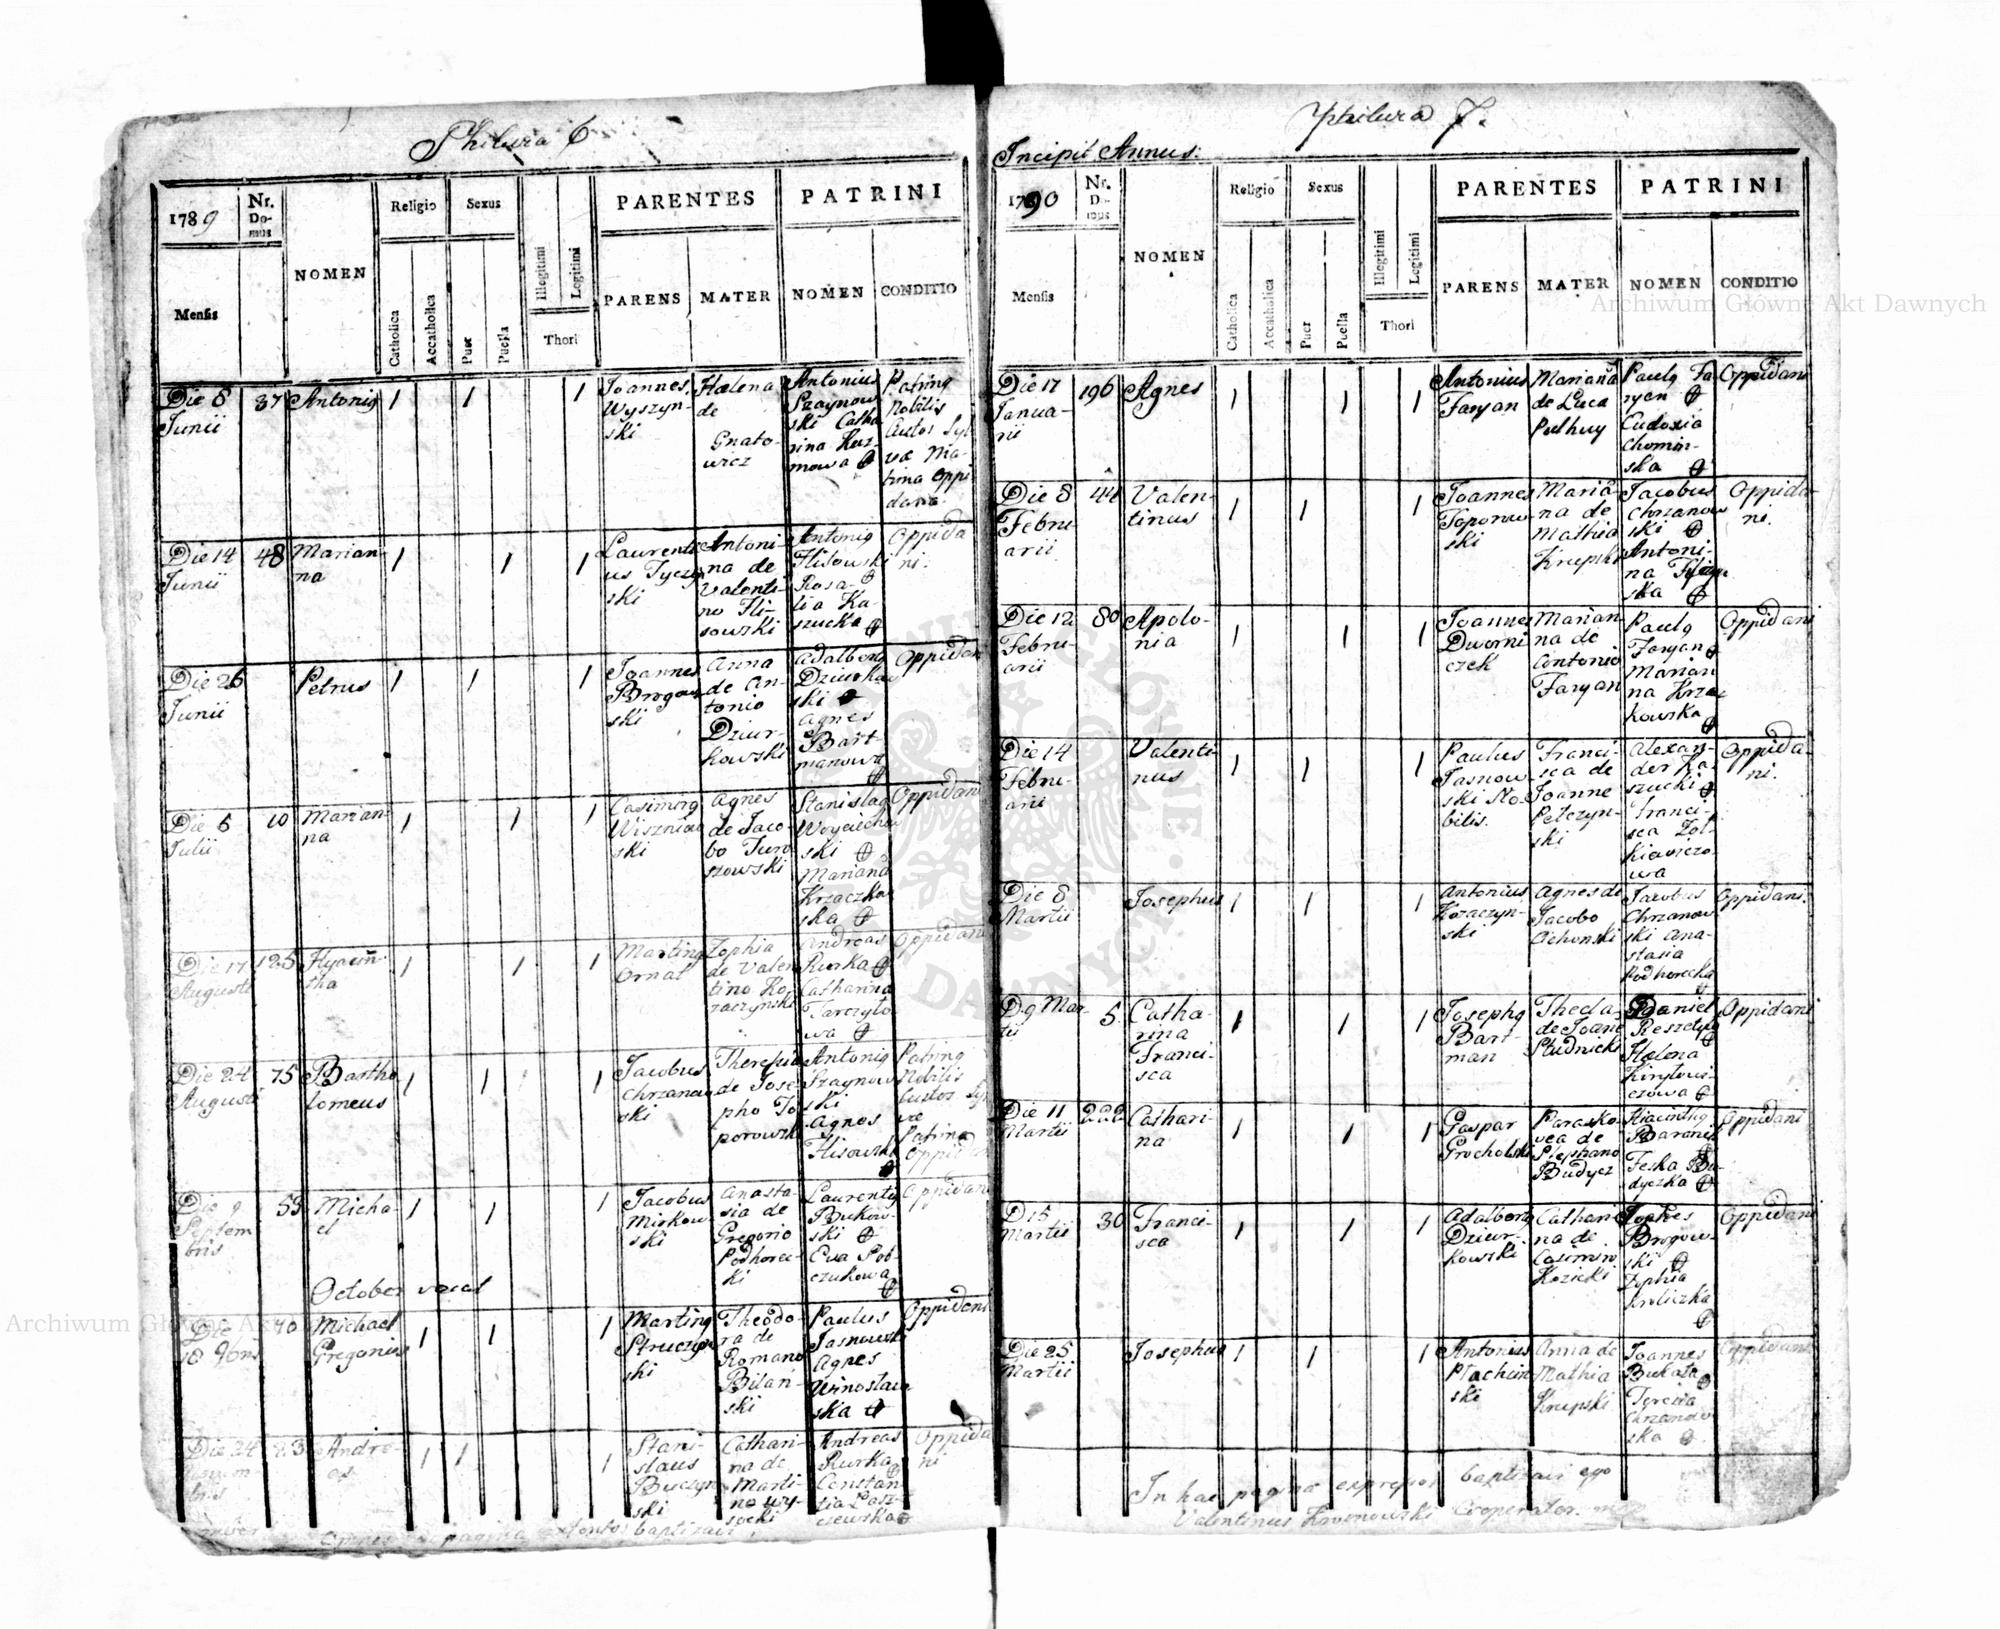 Philura 6
1789
Nr. Domus
NOMEN
Religio
Sexus
PARENTES
PATRINI
Mensis
Catholica
Accatholica
Puer
Puella
Illegitimi
Legitimi
Thori
PARENS
MATER
NOMEN
CONDITIO
Die 8 Junii
37
Antonig
1
1
1
Joannes Wyszyn-
ski
Hælena de
Gnato-
wicz
Antonius
Szaynow
ski Catha
rina Kuz-
mowa
Patring
Nobilis
Custos Syl
væ Ma-
trina Oppi
dana
Die 14 Junii
48
Marian-
na
1
1
1
Laurenti-
us Tyczyn
ski
Antoni-
na de
Valenti-
no Hli-
sowski
Antonig
Hlisowski
Rosa-
lia Ka-
szucka
Oppida
ni.
Die 26
Junii
Petrus
1
1
1
Joannes
Brogow
ski
Anna
de An-
tonio
Dziur-
kowski
Adalberg
Dziurkow
ski
Agnes
Bart-
manowa
Oppidani
Die 6
Julii
10
Marian-
na
1
1
1
Casimirg
Wisznio
ski
Agnes
de Jaco-
bo Juro
szowski
Stanislag
Woyciecho
ski
Mariana
Krzaczko
ska
Oppidani
Die 17
Augusti
125
Hyacin-
tha
1
1
1
Marting
Ornat
Zophia
de Valen
tino Ko-
zaczynski
Andreas
Rurka
Catharina
Tarczyło
wa
Oppidani
Die 24
Augusti
75
Bartho
lomeus
1
1
1
Jacobus
Chrzanow
ski
Theresia
de Jose
pho To
porowski
Antonig
Szaynow
ski
Agnes
Hlisowsk
Patring
Nobilis
Custos Syl
væ
Patrina
Oppidan
Die 9
Septem
bris
53
Micha-
el
1
1
1
Jacobus
Mirkow
ski
Anasta-
sia de
Gregorio
Podhorec-
ki
Laurenty
Bukow-
ski
Eva Pob-
czukowa
Oppidani
October vacat
Die
18 9bris
70
Michael
Gregorius
1
1
1
Marting
Struczyn
ski
Theodo-
ra de
Romano
Bilan-
ski
Paulus
Jasnowski
Agnes
Winosław
ska
Oppidani
Die 24
23
Andre-
as
1
1
1
Stani-
slaus
Buczyn
ski
Cathari-
na de
Marti-
no Wy-
socki
Andreas
Rurka
Constan
tia Lasz-
czewska
Oppida
ni
pagina baptisavi
Philura 7.
Incipit Annus.
1790
Nr. Domus
NOMEN
Religio
Sexus
PARENTES
PATRINI
Mensis
Catholica
Accatholica
Puer
Puella
Illegitimi
Legitimi
Thori
PARENS
MATER
NOMEN
CONDITIO
Die 17
Janua-
rii
196
Agnes
1
1
1
Antonius
Faryan
Mariana
de Luca
Pulhuy
Paulg Fa-
ryan
Eudoxia
Chomin-
ska
Oppidani
Die 8
Febru-
arii
44
Valen-
tinus
1
1
1
Joannes
Toporow
ski
Maria-
na de
Mathia
Krupski
Jacobus
Chrzanow
ski
Antoni-
na
ska
Oppida-
ni.
Die 12
Febru-
arii
80
Apolo-
nia
1
1
1
Joannes
Dworni
czek
Marian
na de
Antonio
Faryan
Paulg
Faryan
Marian
na Krza-
kowska
Oppidani
Die 14
Febru-
arii
Valenti-
nus
1
1
1
Paulus
Jasnow-
ski No-
bilis.
Franci-
sca de
Joanne
Pelczyn-
ski
Alexan-
der Ka-
szucki
Franci-
sca Zol-
kiewiczo-
wa
Oppida-
ni.
Die 8
Martii
Josephus
1
1
1
Antonius
Kozaczyn-
ski
Agnes de
Jacobo
Cichonski
Jacobus
Chrzanow
ski Ana-
stasia
Podhorecka
Oppidani.
D. 9 Mar-
tii
5.
Catha-
rina
Franci-
sca
1
1
1
Josephg
Bart-
man
Thecla
de Joane
Studnicki
Daniel
Reszetyg
Hælena
Kirylowi-
czowa
Oppidani
Die 11
Martii
222
Cathari-
na
1
1
1
Gaspar
Grocholski
Parasko-
vea de
Stephano
Budycz
Hiacinthg
Baranek
Feska Bu-
dyczka
Oppidani
D 15
Martii
30
Franci-
sca
1
1
1
Adalberg
Dziur-
kowski
Cathari-
na de
Casimiro
Kozicki
Joanes
Brogow-
ski
Zophia
Kruliczka
Oppidani
Die 25
Martii
Josephus
1
1
1
Antonius
Ptachcin
ski
Anna de
Mathia
Krupski
Joannes
Bukata
Teresia
Chrzanow
ska
Oppidani
In hac pagina expressos baptisavi ego
Valentinus Krosnowski Cooperator. mpp
Archiwum Główne Akt Dawnych
Archiwum Główne Akt Dawnych